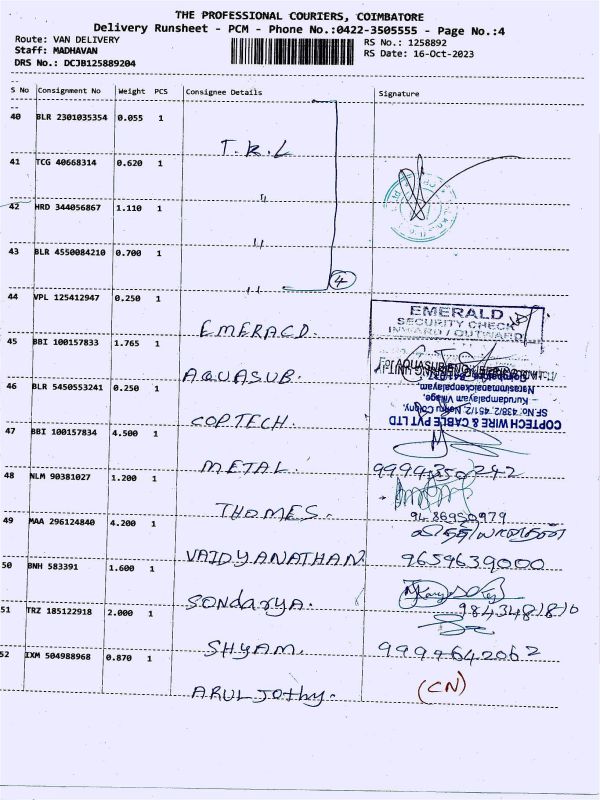 THE PROFESSIONAL COURIERS, COIMBATORE
Delivery Runsheet - PCM - Phone No.:0422-3505555 - Page No.:4
Route: VAN DELIVERY
Staff: MADHAVAN
DRS No.: DCJB125889204
RS No.: 1258892
RS Date: 16-Oct-2023
S No Consignment No Weight PCS Consignee Details Signature
40 BLR 2301035354 0.055 1
T.R.L
41 TCG 40668314 0.620 1
"
42 HRD 344056867 1.110 1
"
43 BLR 4550084210 0.700 1
" 4
44 VPL 125412947 0.250 1
EMERALD
SECURITY CHECK
INWARD / OUTWARD
EMERACD.
45 BBI 100157833 1.765 1
AQUASUB.
46 BLR 5450553241 0.250 1
Narasimmanaickenpalayam
Kurudampalayam Village,
SF.No:438/2, 451/2, Nakku Colony,
COPTECH WIRE & CABLE PVT LTD
COPTECH.
47 BBI 100157834 4.500 1
METAL. 9994350242
48 NLM 90381027 1.200 1
THOMES. 9486950979
49 MAA 296124840 4.200 1
VAIDYANATHAN 9659639000
50 BNH 583391 1.600 1
SONDARYA. 9843481810
51 TRZ 185122918 2.000 1
SHYAM. 9999642062
52 IXM 504988968 0.870 1
ARUL Jothy. (CN)